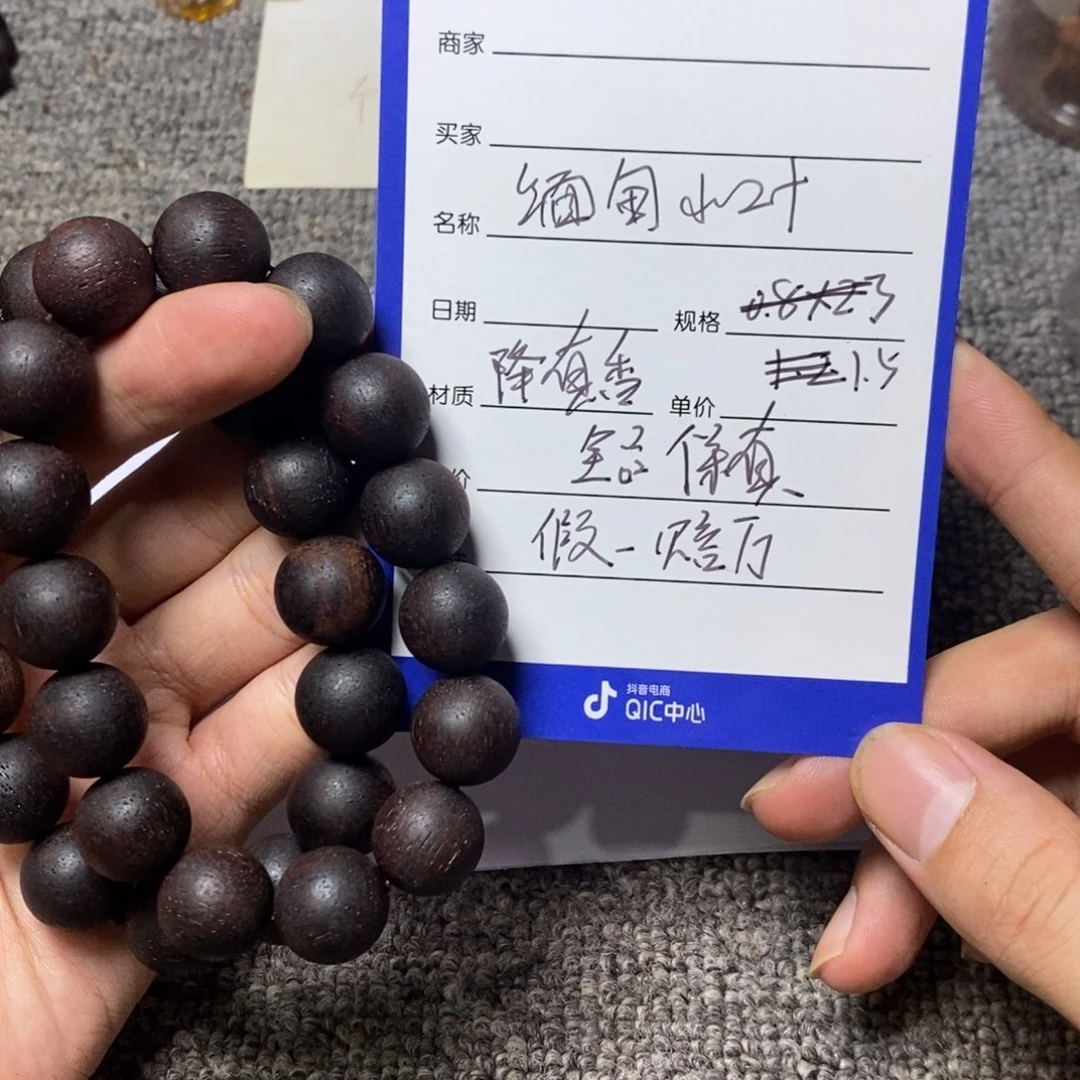 商家
买家
名称 缅甸小叶
日期 规格 0.8×23
材质 降真香 单价 1.5
价 全品保真
假一赔万
抖音电商
QIC中心